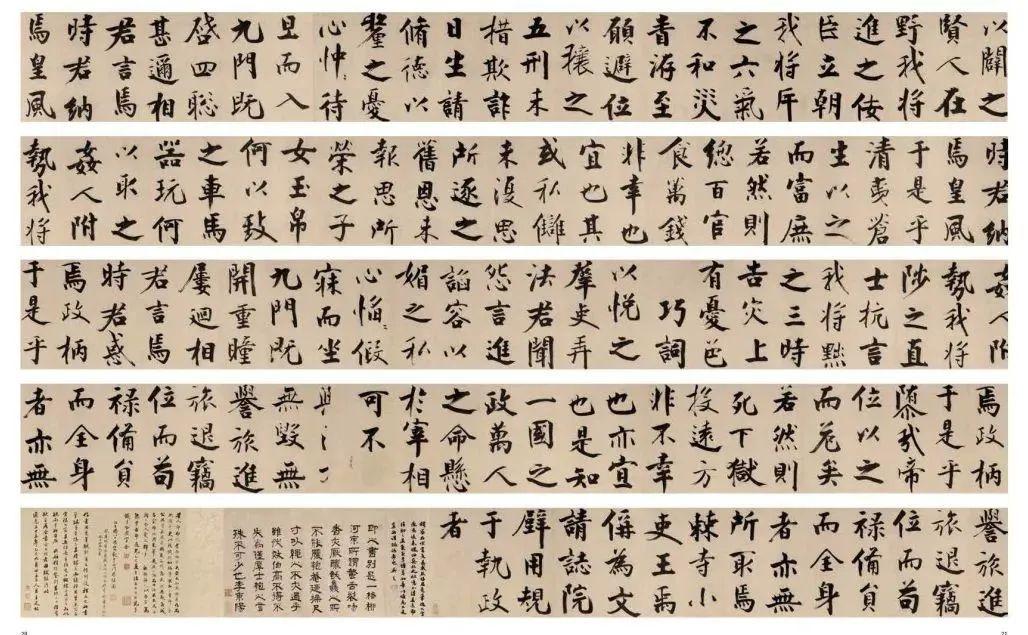 以闢之
賢人在
野我將
進之佞
臣立朝
我將斥
之六氣
不和災
眚洊至
願避位
以禳之
五刑未
措欺詐
日生請
脩德以
釐之憂
心忡〻待
旦而入
九門既
啓四聰
甚邇相
君言焉
時君納
焉皇風
時君納
焉皇風
于是乎
清夷蒼
生以之
而富庶
若然則
總百官
食萬錢
非幸也
宜也其
或私讎
未復思
所逐之
舊恩未
報思所
榮之子
女玉帛
何以致
之車馬
器玩何
以取之
姦人附
勢我將
姦人附
勢我將
陟之直
士抗言
我將黜
之三時
告災上
有憂色
巧詞
以悅之
羣吏弄
法君聞
怨言進
諂容以
媚之私
心慆〻假
寐而坐
九門既
開重瞳
屢迴相
君言焉
時君惑
焉政柄
于是乎
焉政柄
于是乎
隳哉帝
位以之
而危矣
若然則
死下獄
投遠方
非不幸
也亦宜
也是知
一國之
政萬人
之命懸
於宰相
可不
無毀無
譽旅進
旅退竊
位而苟
祿備員
而全身
者亦無
譽旅進
旅退竊
位而苟
祿備員
而全身
者亦無
所取焉
棘寺小
吏王禹
偁為文
請誌院
壁用規
于執政
者